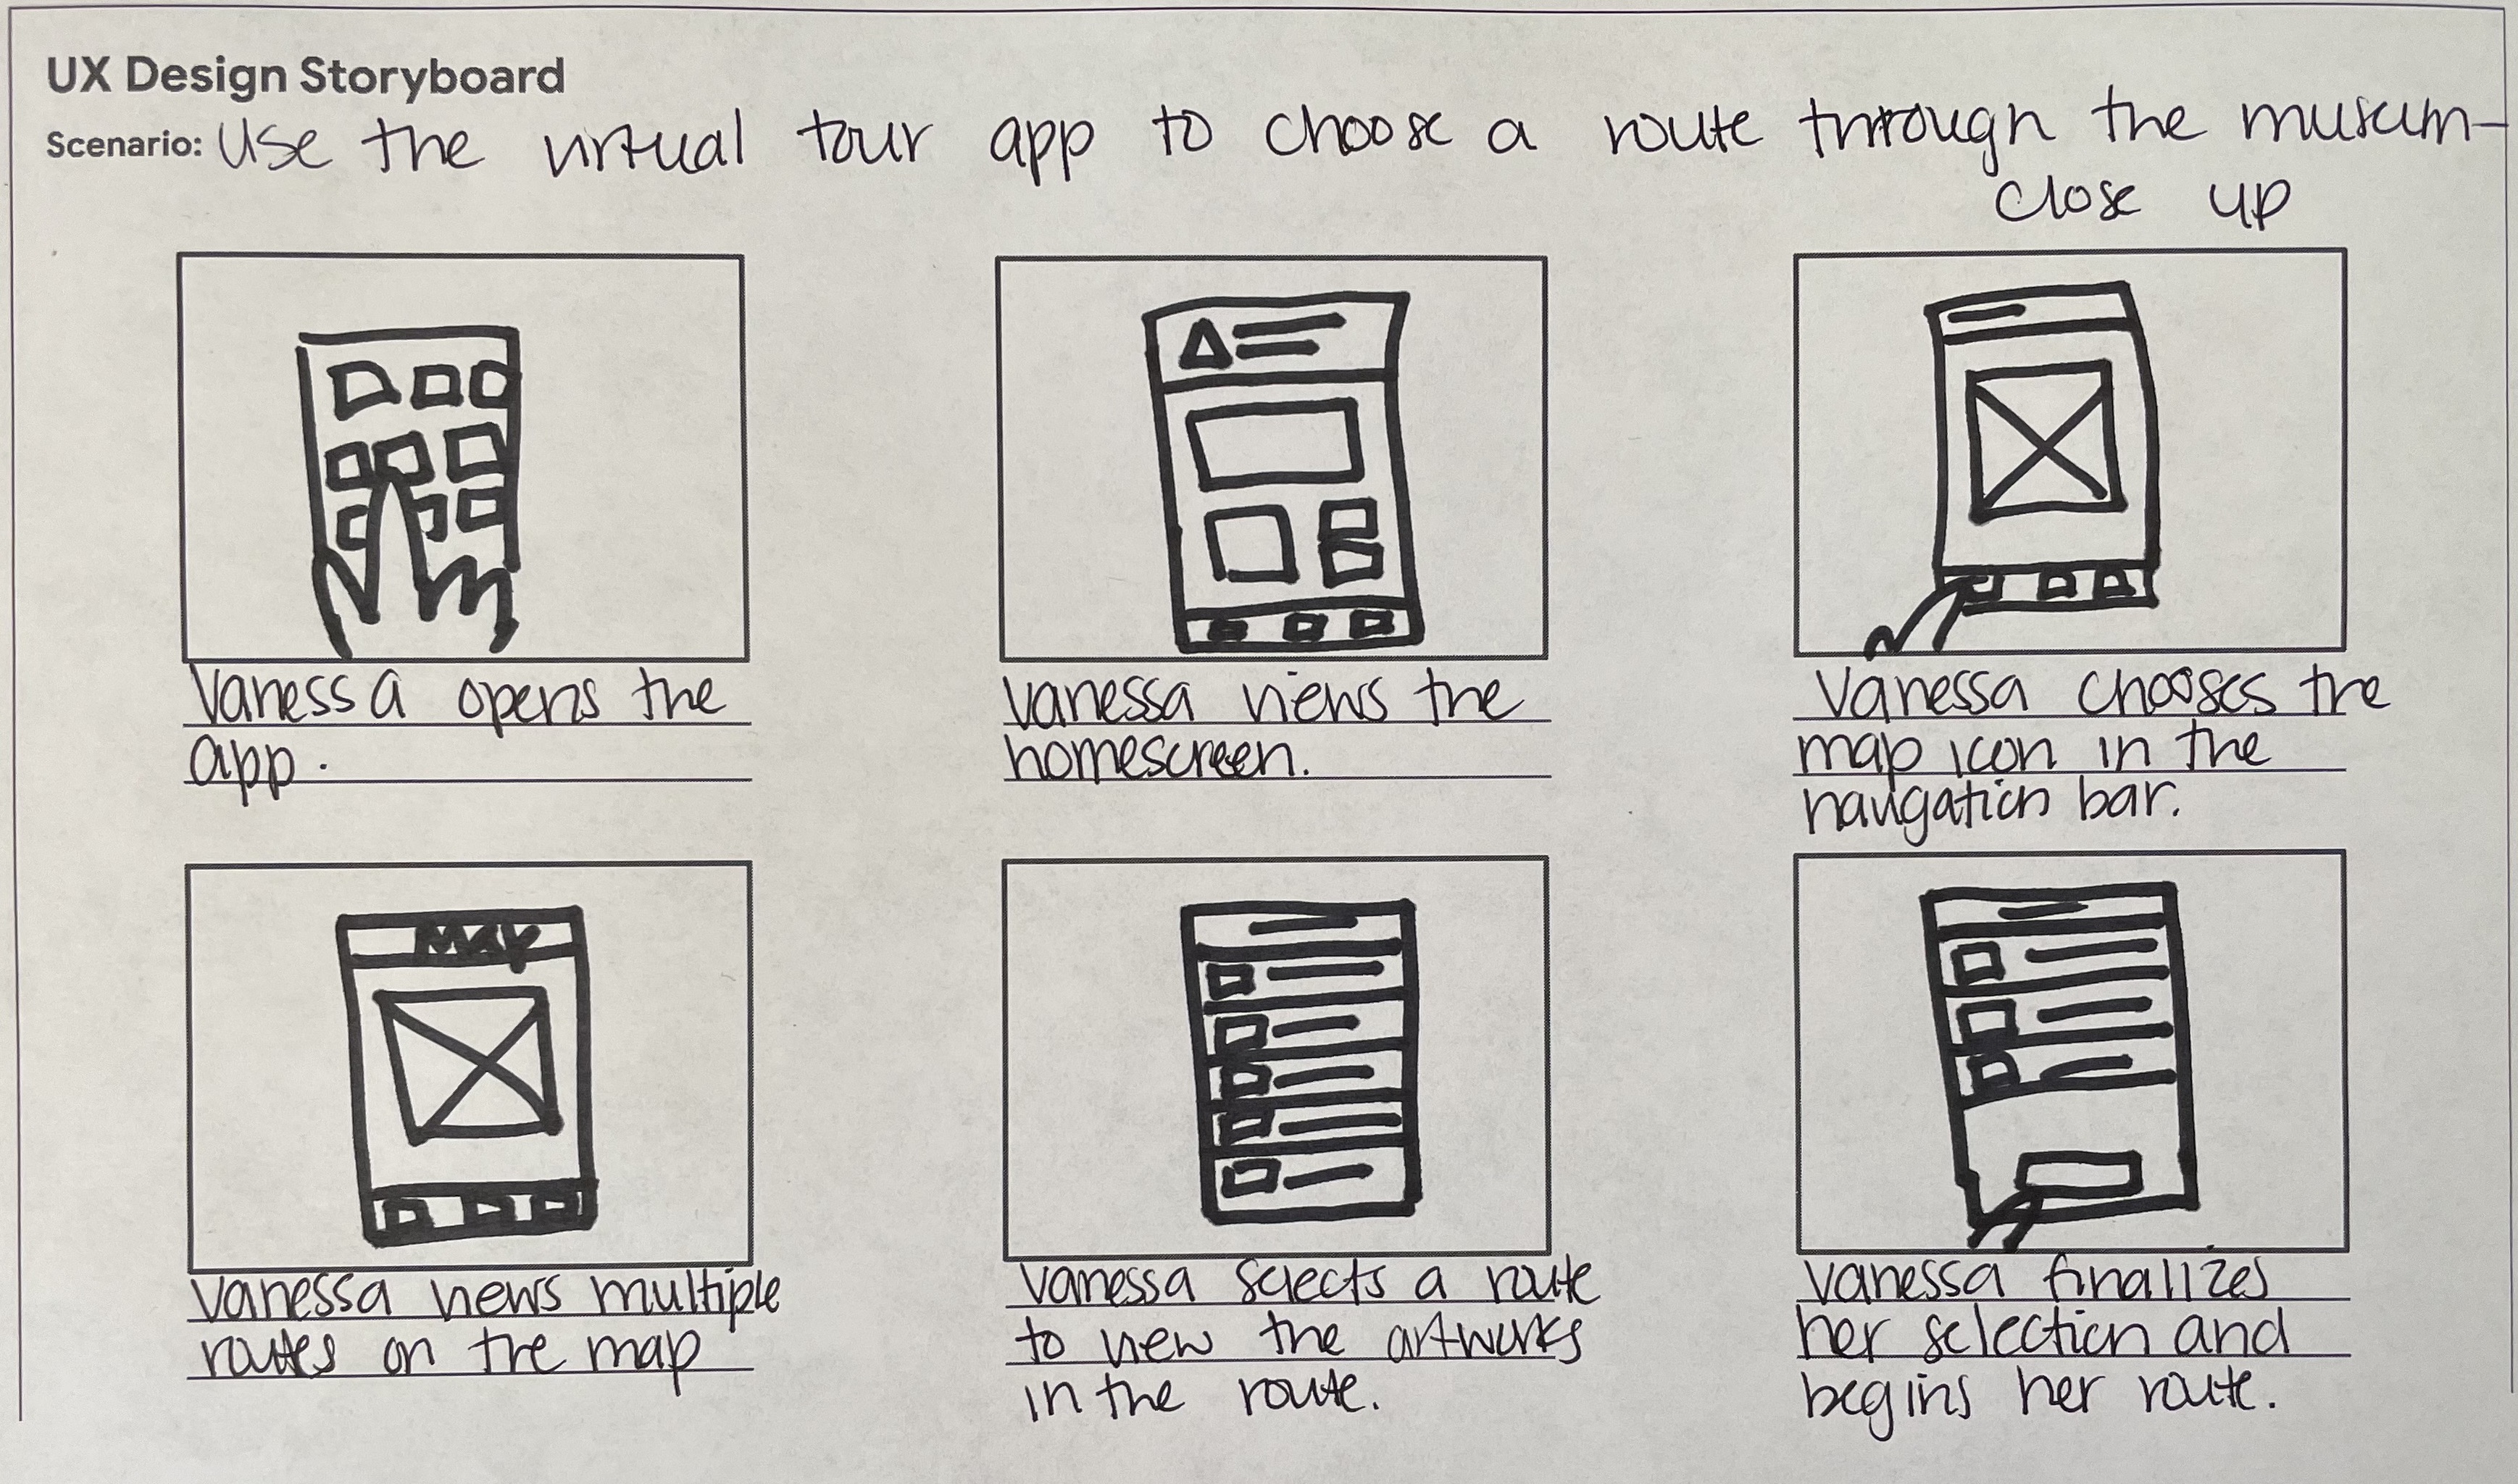 UX Design Storyboard
Scenario: Use the virtual tour app to choose a route through the museum-
close up
Vanessa opens the
app.
Vanessa views the
homescreen.
Vanessa chooses the
map icon in the
navigation bar.
Map
Vanessa views multiple
routes on the map
Vanessa selects a route
to view the artworks
in the route.
Vanessa finalizes
her selection and
begins her route.